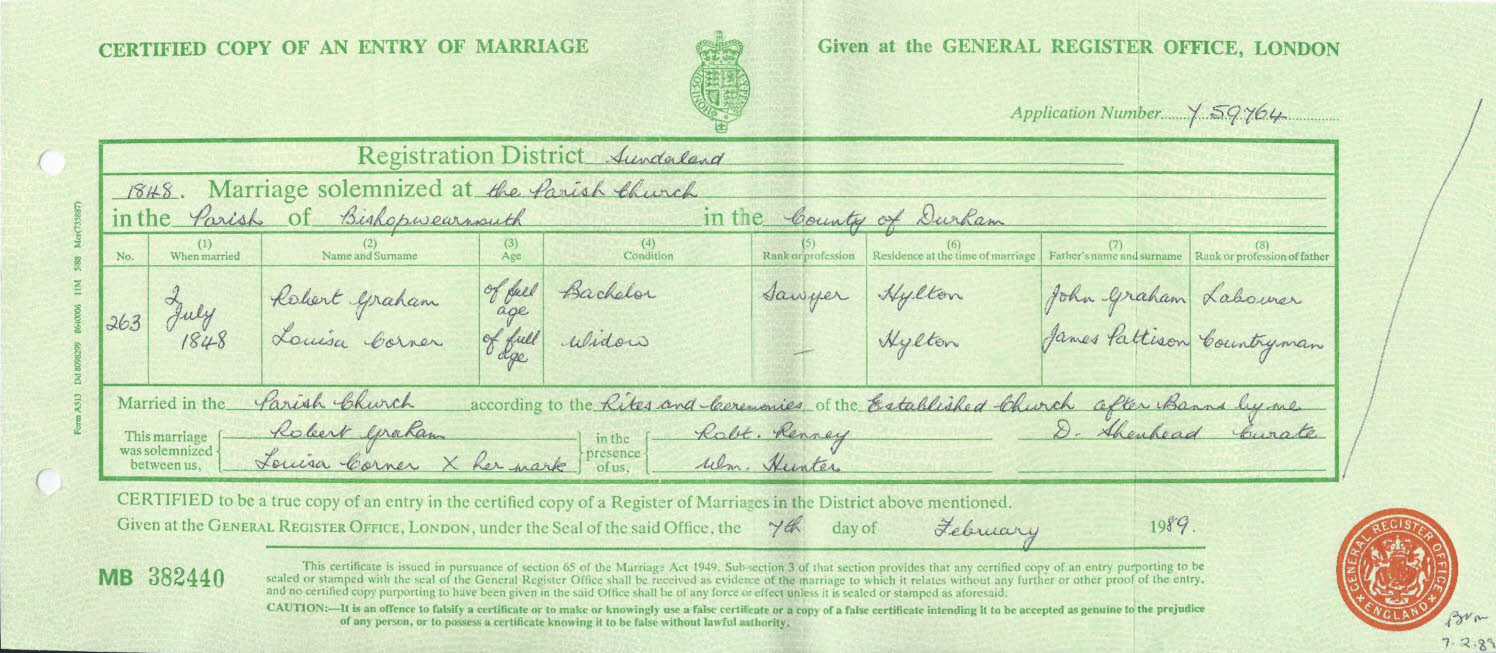 CERTIFIED COPY OF AN ENTRY OF MARRIAGE
Given at the GENERAL REGISTER OFFICE, LONDON
Application Number Y 59764
Registration District Sunderland
1848. Marriage solemnized at the Parish Church
in the Parish of Bishopwearmouth in the County of Durham
No. (1) When married (2) Name and Surname (3) Age (4) Condition (5) Rank or profession (6) Residence at the time of marriage (7) Father's name and surname (8) Rank or profession of father
263 2 July 1848
Robert Graham of full age Bachelor Sawyer Hylton John Graham Labourer
Louisa Corner of full age Widow — Hylton James Pattison Countryman
Married in the Parish Church according to the Rites and Ceremonies of the Established Church after Banns by me
This marriage was solemnized between us, Robert Graham in the presence of us, Robt. Renney D. Shenhead Curate
Louisa Corner X her mark Wm. Hunter
CERTIFIED to be a true copy of an entry in the certified copy of a Register of Marriages in the District above mentioned.
Given at the GENERAL REGISTER OFFICE, LONDON, under the Seal of the said Office, the 7th day of February 1989.
MB 382440
This certificate is issued in pursuance of section 65 of the Marriage Act 1949. Sub-section 3 of that section provides that any certified copy of an entry purporting to be
sealed or stamped with the seal of the General Register Office shall be received as evidence of the marriage to which it relates without any further or other proof of the entry,
and no certified copy purporting to have been given in the said Office shall be of any force or effect unless it is sealed or stamped as aforesaid.
CAUTION:—It is an offence to falsify a certificate or to make or knowingly use a false certificate or a copy of a false certificate intending it to be accepted as genuine to the prejudice
of any person, or to possess a certificate knowing it to be false without lawful authority.
GENERAL REGISTER OFFICE ENGLAND
7.2.89
Form A513 Dd 8098299 8640006 11M 5/88 Mcr(735887)